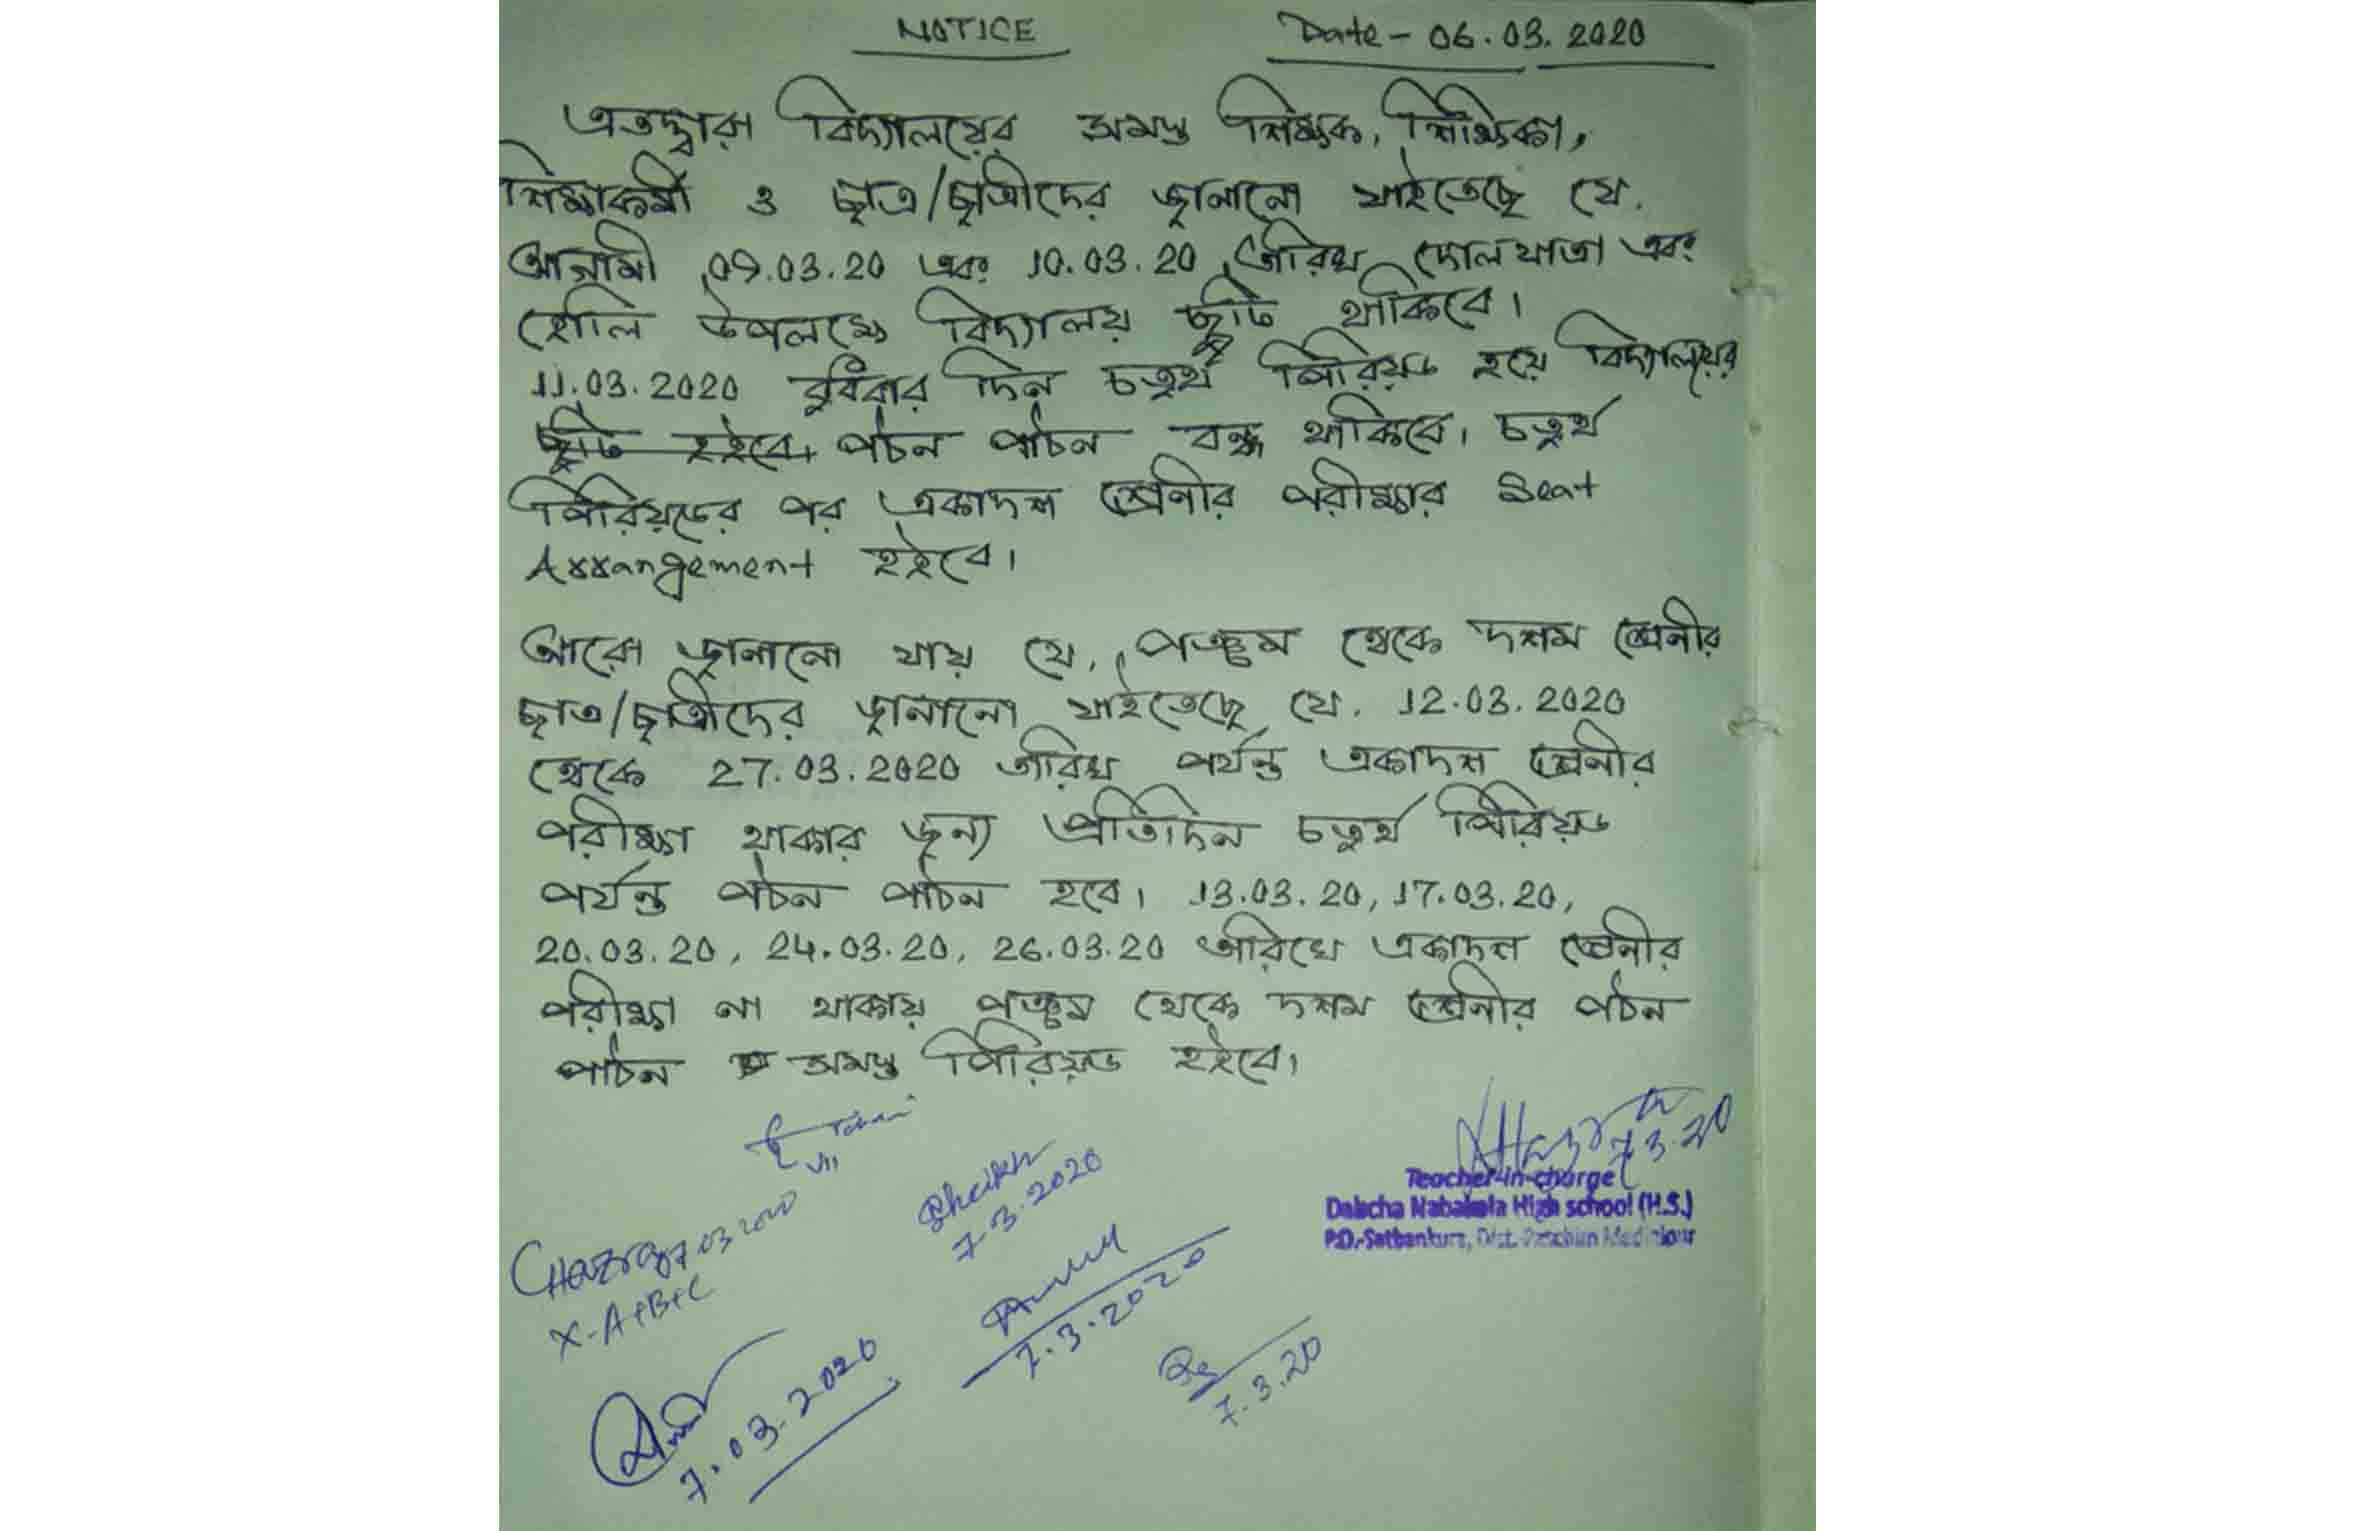 NOTICE
Date - 06.03.2020
এতদ্বারা বিদ্যালয়ের সমস্ত শিক্ষক, শিক্ষিকা,
শিক্ষাকর্মী ও ছাত্র/ছাত্রীদের জানানো যাইতেছে যে.
আগামী 09.03.20 এবং 10.03.20 তারিখ দোলযাত্রা এবং
হোলি উপলক্ষে বিদ্যালয় ছুটি থাকিবে।
11.03.2020 বুধবার দিন চতুর্থ পিরিয়ড হয়ে বিদ্যালয়ের
ছুটি হইবে। পঠন পাঠন বন্ধ থাকিবে। চতুর্থ
পিরিয়ডের পর একাদশ শ্রেনীর পরীক্ষার Seat
Arrangement হইবে।
আরো জানানো যায় যে, পঞ্চম থেকে দশম শ্রেনীর
ছাত্র/ছাত্রীদের জানানো যাইতেছে যে. 12.03.2020
থেকে 27.03.2020 তারিখ পর্যন্ত একাদশ শ্রেনীর
পরীক্ষা থাকার জন্য প্রতিদিন চতুর্থ পিরিয়ড
পর্যন্ত পঠন পাঠন হবে। 13.03.20, 17.03.20,
20.03.20, 24.03.20, 26.03.20 তারিখে একাদশ শ্রেনীর
পরীক্ষা না থাকায় পঞ্চম থেকে দশম শ্রেনীর পঠন
পাঠন সমস্ত পিরিয়ড হইবে।
VII
7.3.20
Teacher-in-charge
Dabcha Nabakola High school (H.S.)
P.O.-Satbankura, Dist. Paschim Medinipur
Sheikh
7.3.2020
CHazra 07.03.2020
X-A+B+C
7.3.2020
7.03.2020
7.3.20